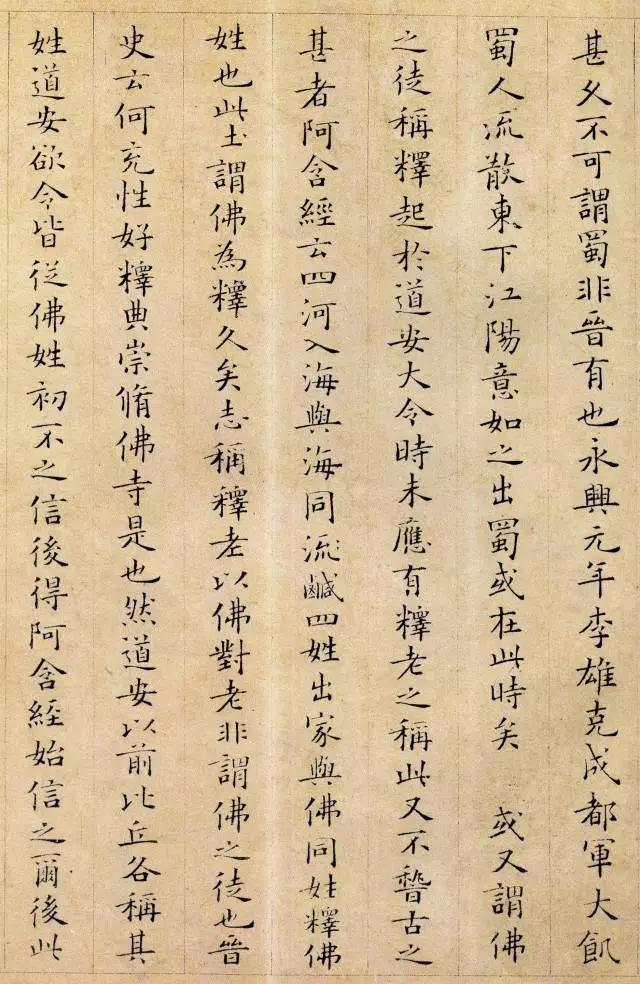 甚久不可謂蜀非晉有也永興元年李雄克成都軍大飢
蜀人流散東下江陽意如之出蜀或在此時矣 或又謂佛
之徒稱釋起於道安大令時未應有釋老之稱此又不嵆古之
甚者阿含經云四河入海與海同流鹹四姓出家與佛同姓釋佛
姓也此土謂佛為釋久矣志稱釋老以佛對老非謂佛之徒也晉
史云何充性好釋典崇脩佛寺是也然道安以前比丘各稱其
姓道安欲令皆從佛姓初不之信後得阿含經始信之爾後此